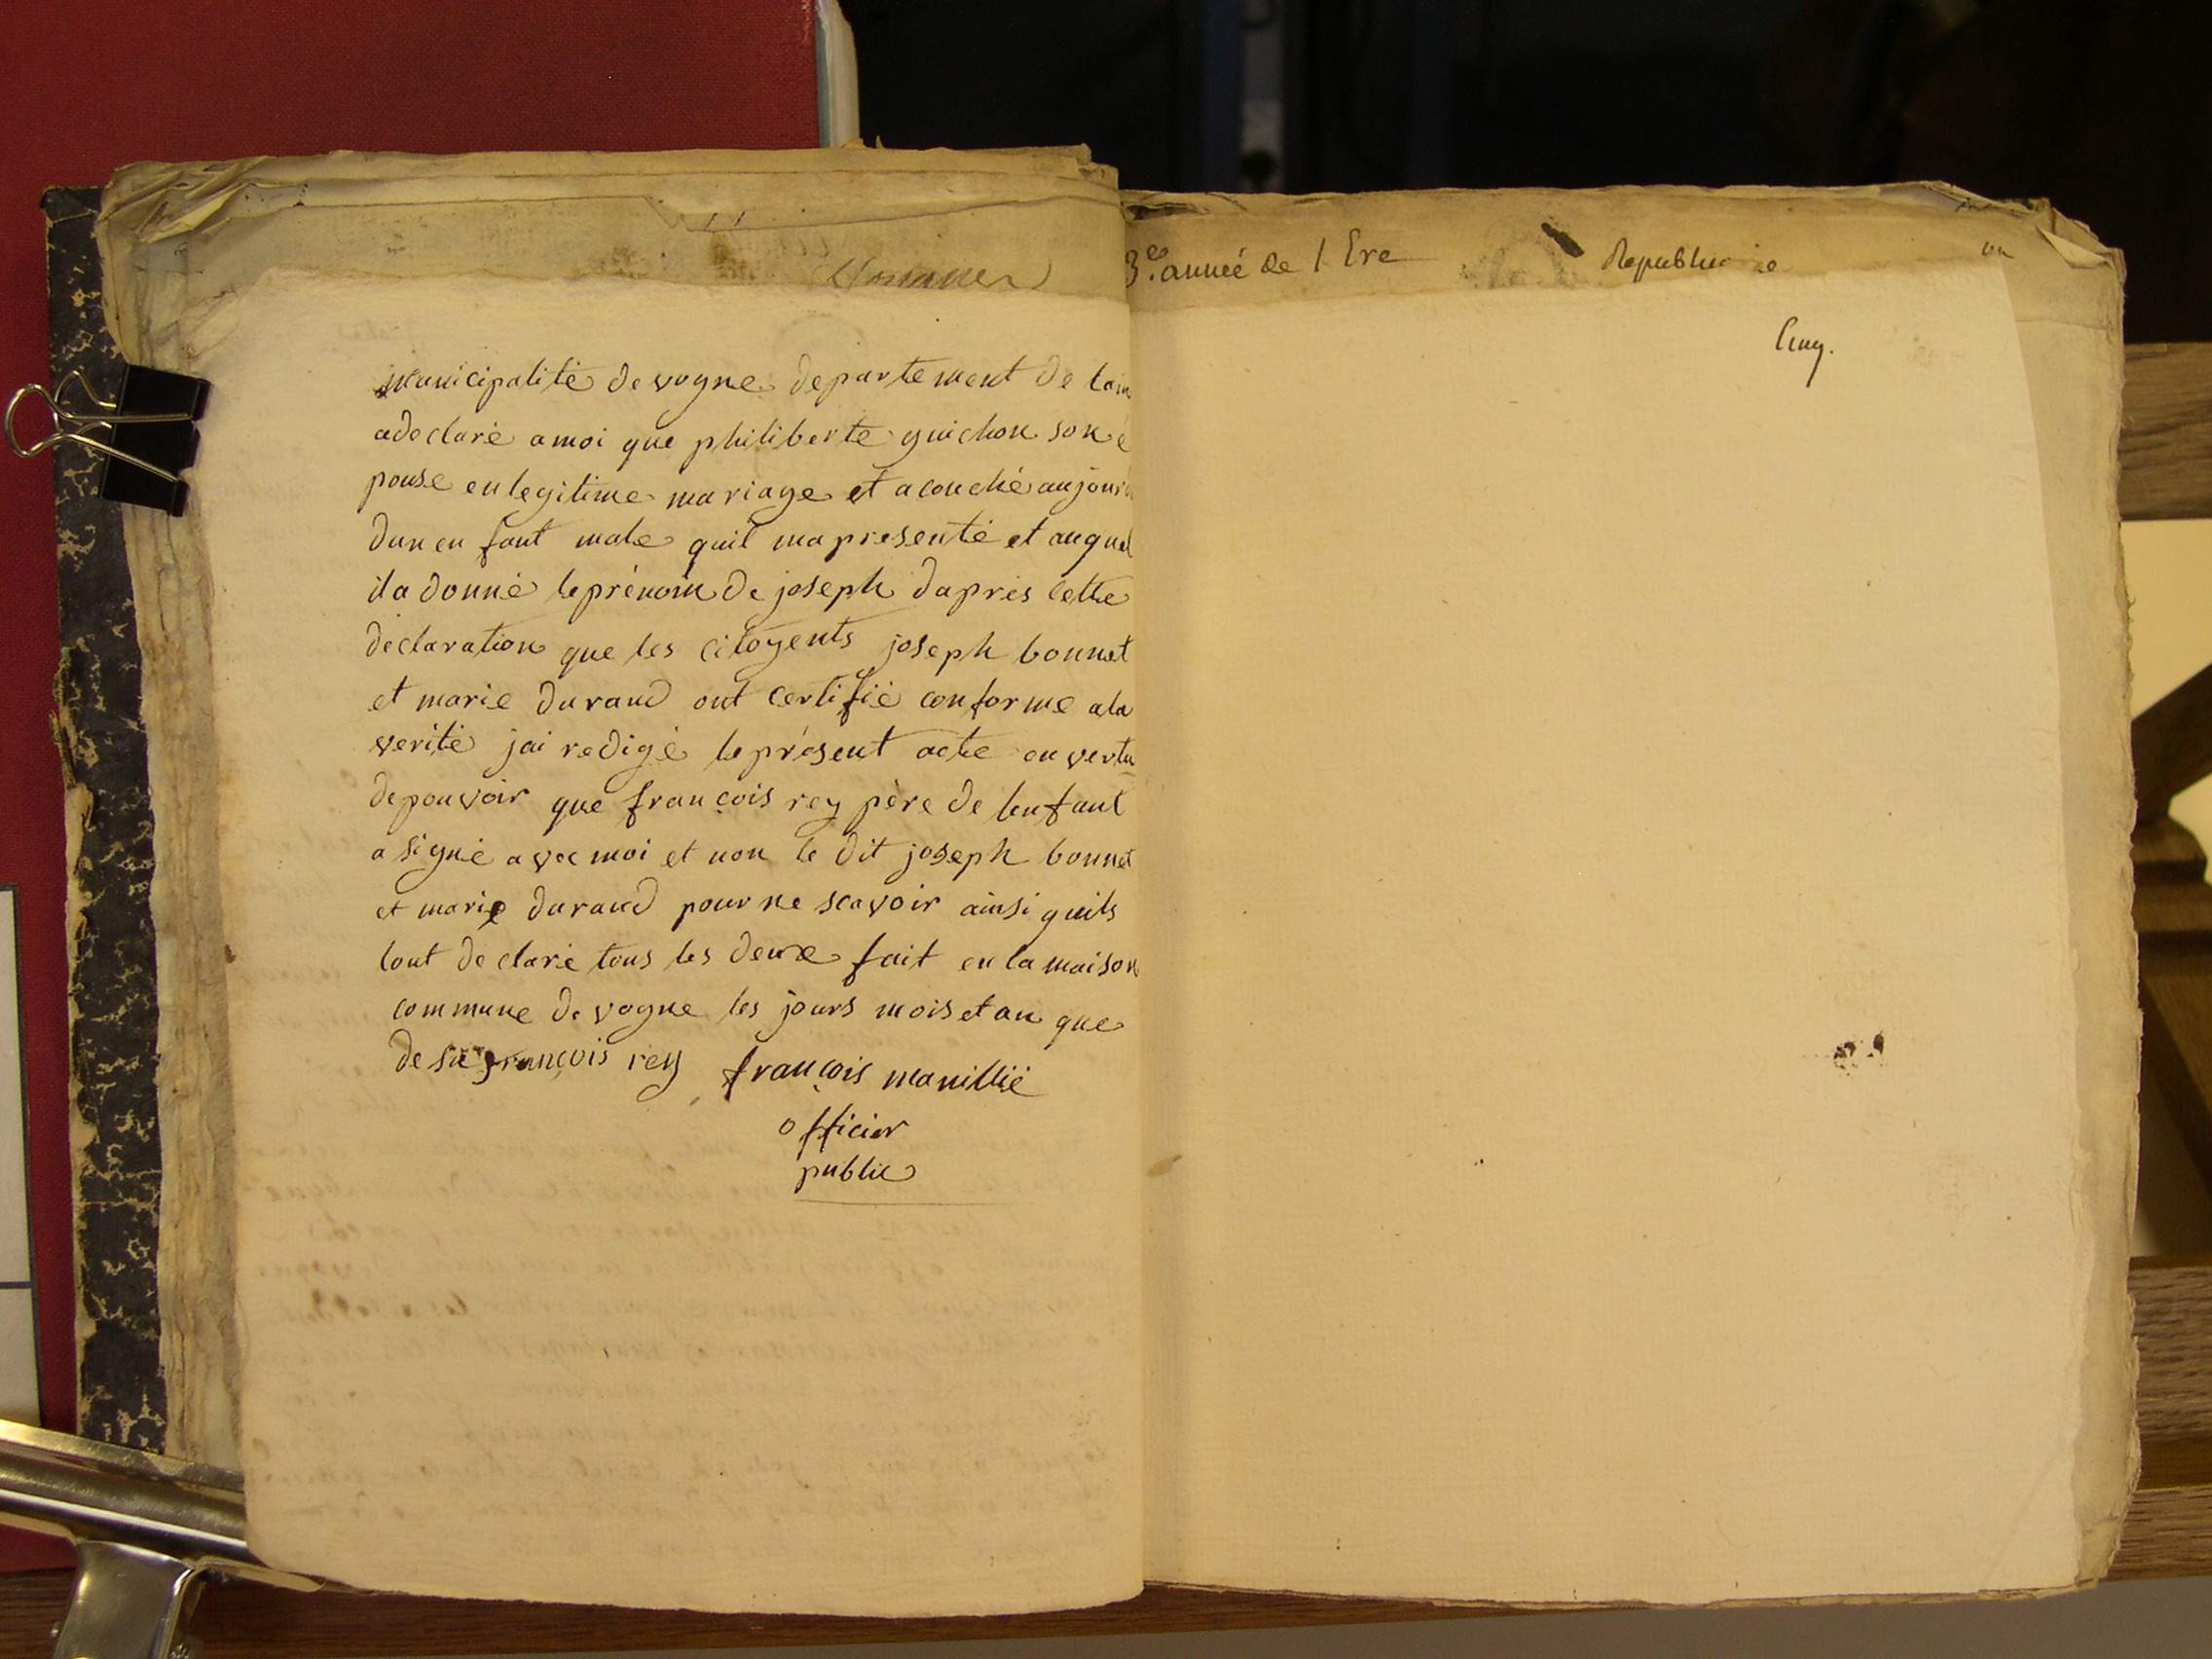 municipalité de vogne departement de lain
a declaré a moi que philiberte guichon son é
pouse en legitime mariage et a couché aujourd
dun en fant male quil ma presenté et auquel
il a donné le prénom de joseph dapres cette
declaration que les citoyents joseph bonnet
et marie durand ont certifié conforme a la
verité jai redigé le présent acte en vertu
de pouvoir que françois rey père de lenfant
a signé avec moi et non le dit joseph bonnet
et marie durand pour ne scavoir ainsi quils
lont declaré tous les deux fait en la maison
commune de vogne les jours mois et an que
de su françois rey françois manillié
officier
public
3e. année de l Ere Republi e
Cuny.